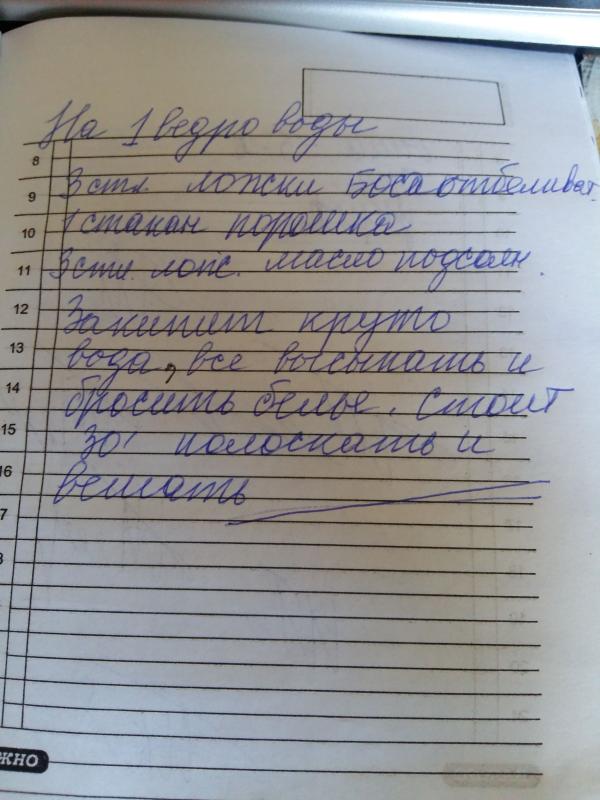 На 1 ведро воды
8
9 3 стл. ложки Боса отбеливат.
10 1 стакан порошка
11 3 стл. лож. масло подсолн.
12 Закипит круто
13 вода, все высыпать и
14 бросить белье. Стоит
15 30' полоскать и
16 вешать
7
жно